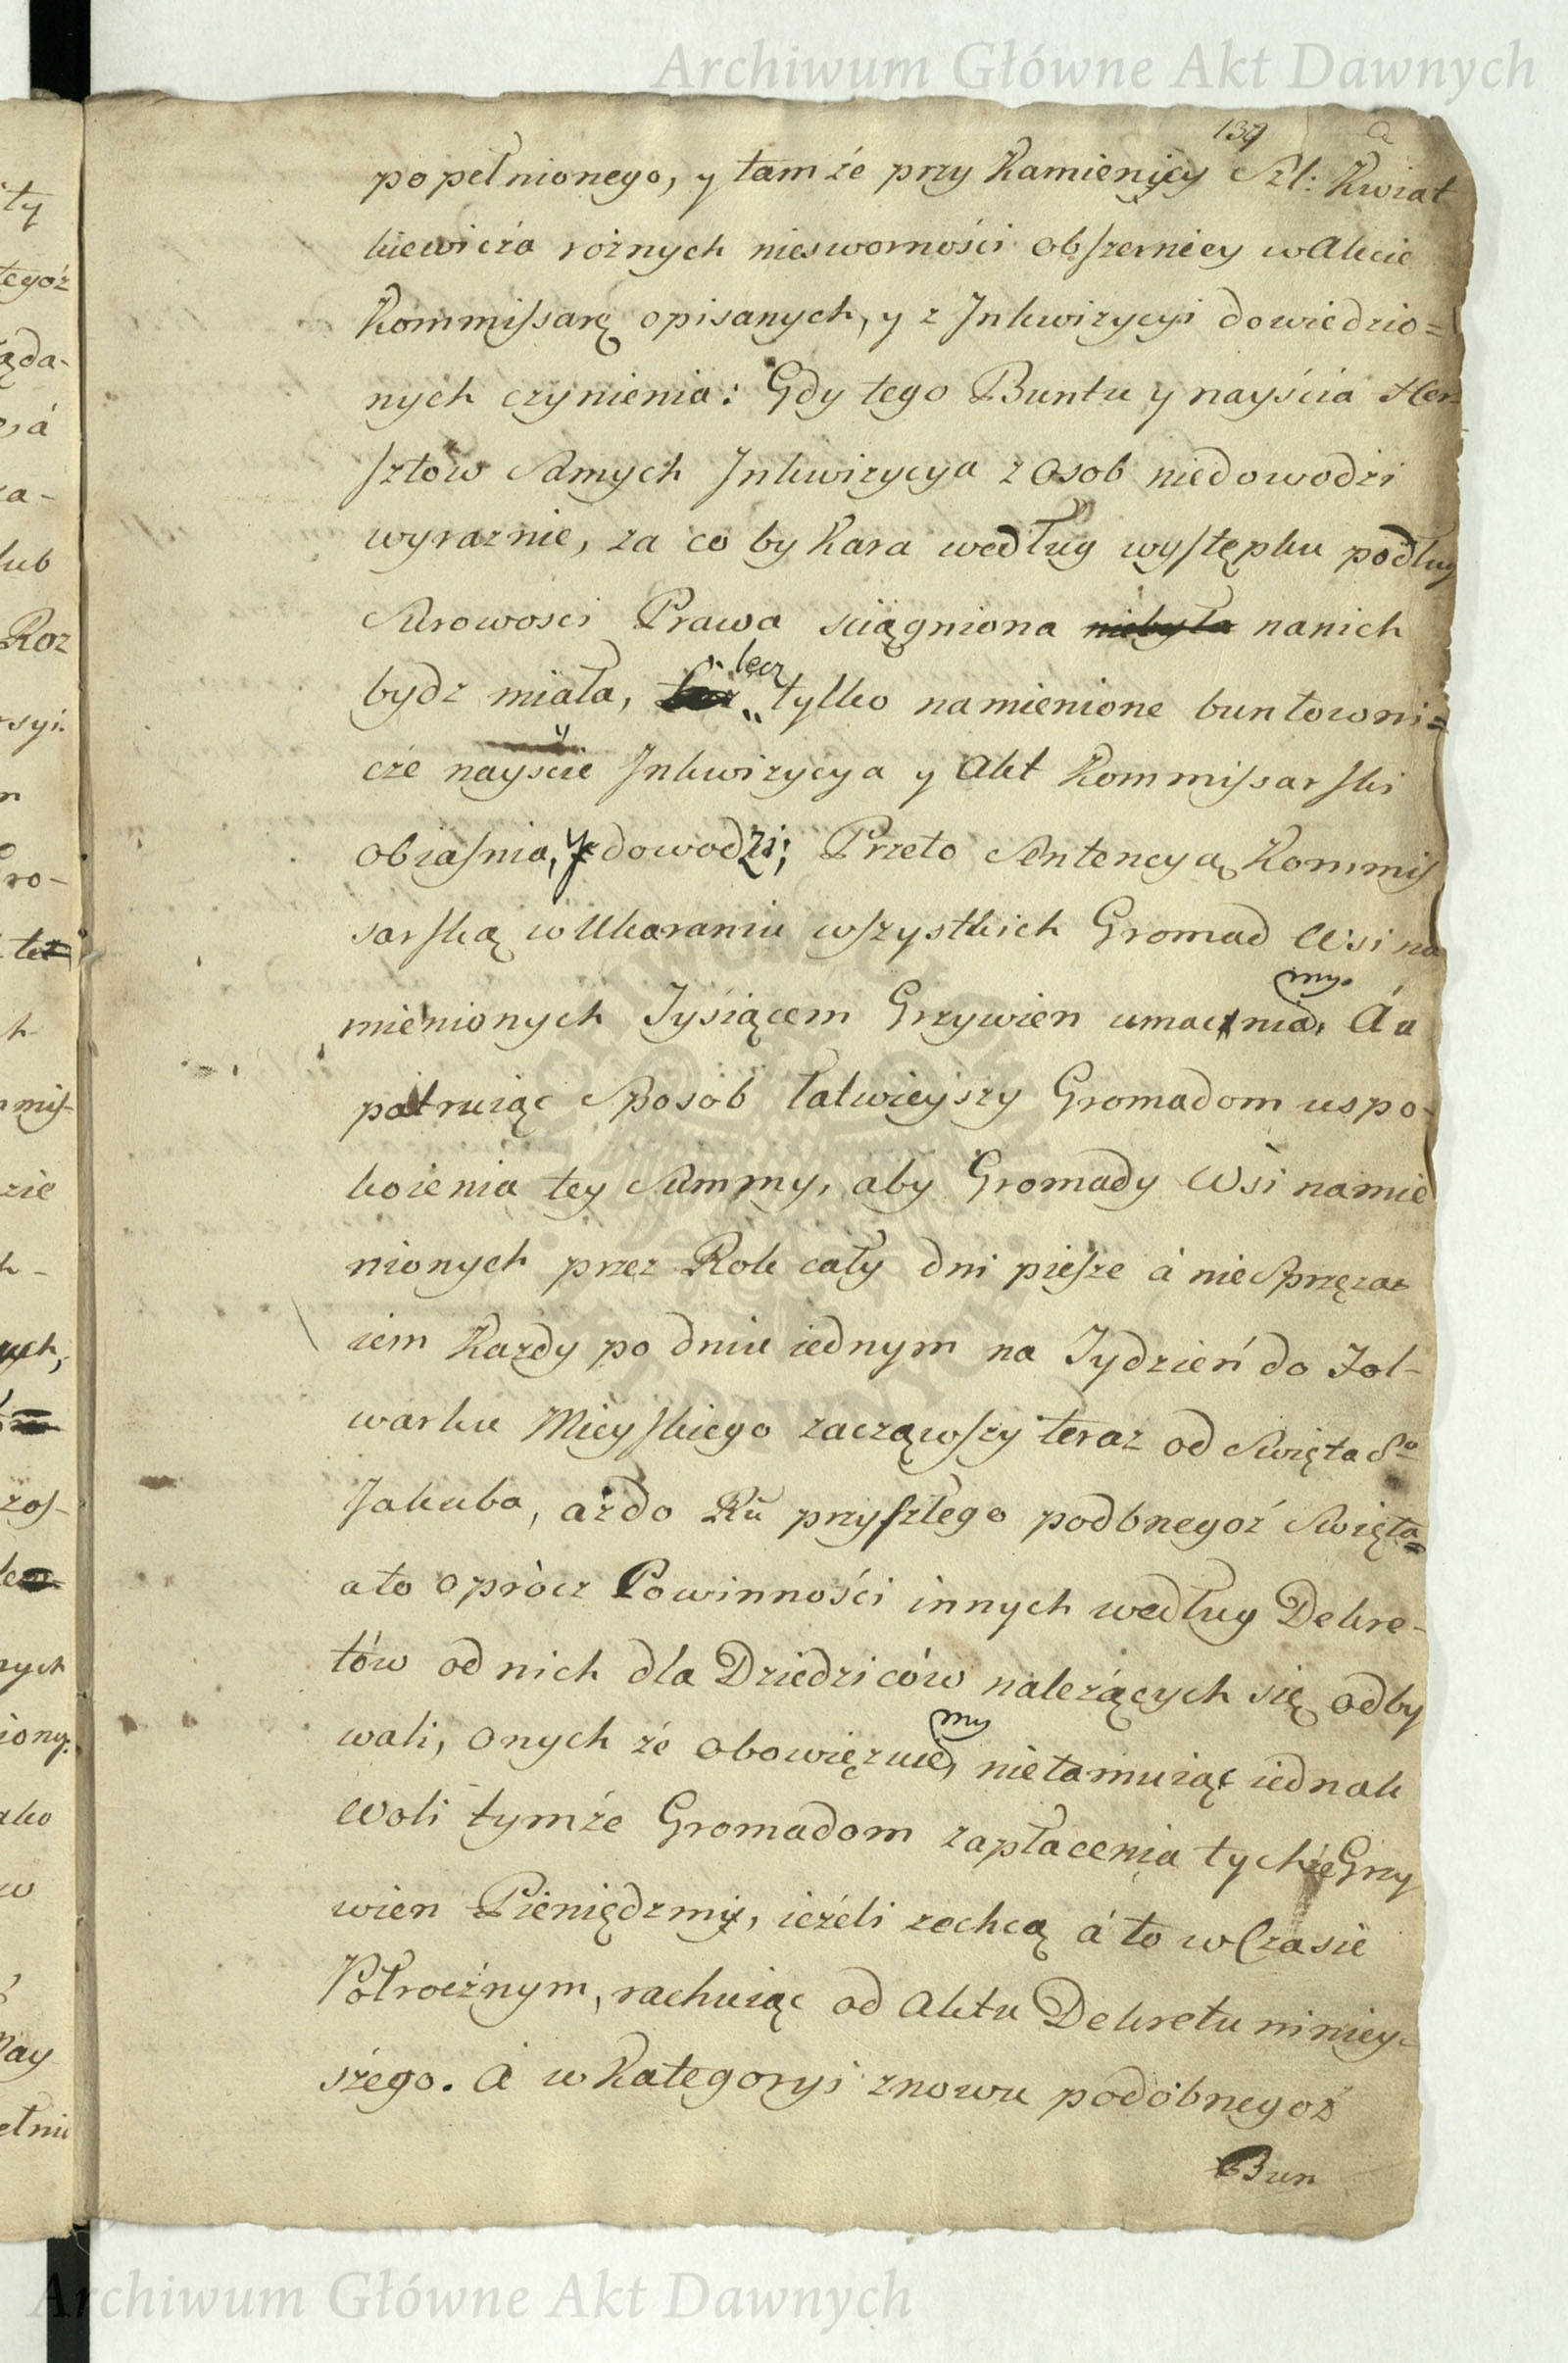 Archiwum Główne Akt Dawnych
139
popełnionego, y tamże przy Kamienicy Szl: Kwiat
kiewicza rożnych niesworności obszerniey w Akcie
Kommissarę opisanych, y z Inkwizycyi dowiedzio=
nych czynienia: Gdy tego Buntu y nayścia Her
sztow Samych Inkwizycya z Osob niedowodzi
wyraznie, za co by Kara według występku podług
Surowosci Prawa sciągniona niebyła nanich
bydz miała, lecz tylko namienione buntowni=
cze nayscie Inkwizycya y Akt Kommissarski
obiasnia, y dowodzi; Przeto Sentencyą Kommis
sarską w Ukaraniu wszystkich Gromad Wsi na
mienionych Tysiącem Grzywien umacniamy. Á u
patruiąc Sposob łatwieyszy Gromadom uspo-
koienia tey Summy, aby Gromady Wsi namie
nionych przez Rok cały dni piesze á nie Sprzęzaz
iem Kazdy po dniu iednym na Tydzień do Fol-
warku Mieyskiego zacząwszy teraz od Swięta So
Jakuba, azdo Ru przyszłego podbnegoż Swięta
ato opròcz Powinności innych według Dekre-
tów od nich dla Dziedziców należących się odby
wali, onych że obowięzuiemy, nietamuiąc iednak
Woli tymże Gromadom zapłacenia tychże Grzy
wien Pieniędzmi, ieżeli zechcą á to w Czasie
Połrocznym, rachuiąc od Aktu Dekretu niniey-
szego. A w Kategoryi znowu podobnegoż
Bun
Archiwum Główne Akt Dawnych